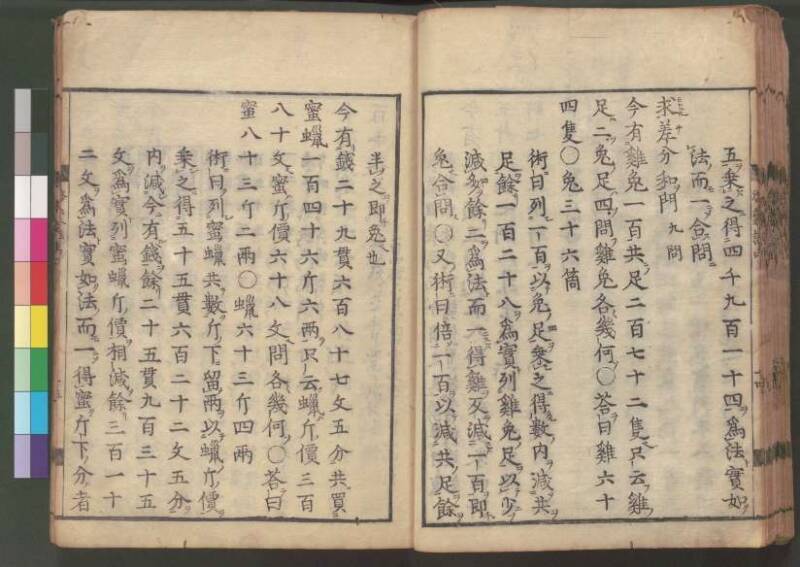 五乗之得四千九百一十四爲法實如
法而一合問
求差分和門 九問
今有雞兔一百共足二百七十二隻只云雞
足二兔足四問雞兔各幾何〇荅曰雞六十
四隻〇兔三十六箇
術曰列一百以兔足乗之得數内減共
足餘一百二十八爲實列雞兔足以少
減多餘二爲法而一得雞反減一百即
兔合問〇又術曰倍一百以減共足餘
半之即兔也
今有錢二十九貫六百八十七文五分共買
蜜蠟一百四十六斤六兩只云蠟斤價三百
八十文蜜斤價六十八文問各幾何〇荅曰
蜜八十三斤二兩〇蠟六十三斤四兩
術曰列蜜蠟共數斤下留兩以蠟斤價
乗之得五十五貫六百二十二文五分
内減今有錢餘二十五貫九百三十五
文爲實列蜜蠟斤價相減餘三百一十
二文爲法實如法而一得蜜斤下分者